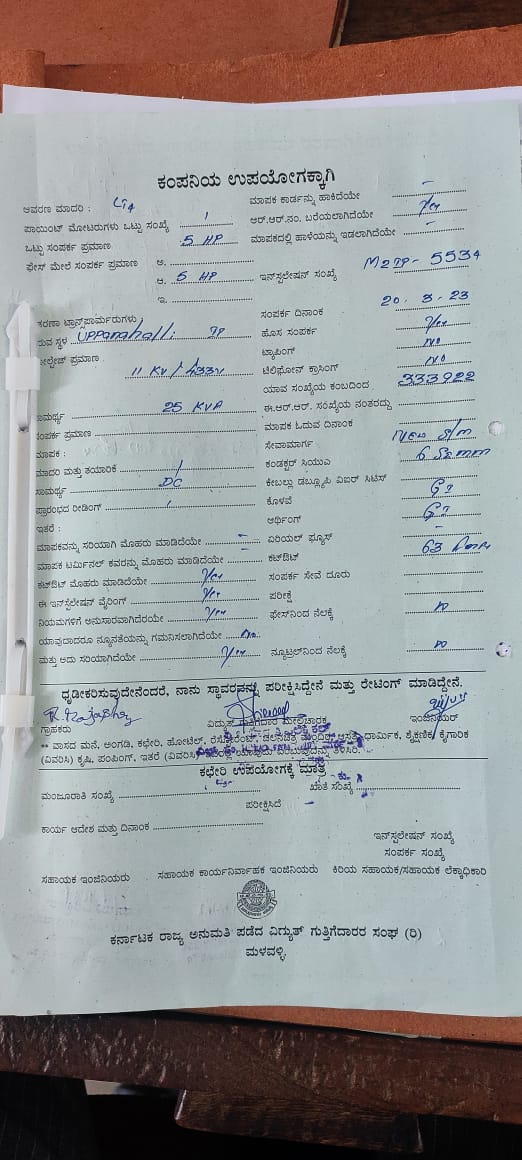 ಕಂಪನಿಯ ಉಪಯೋಗಕ್ಕಾಗಿ
ಆವರಣ ಮಾದರಿ : LT4
ಮಾಪಕ ಕಾರ್ಡನ್ನು ಹಾಕಿದೆಯೇ –
ಪಾಯಿಂಟ್ ಮೋಟರುಗಳು ಒಟ್ಟು ಸಂಖ್ಯೆ 1
ಆರ್.ಆರ್.ನಂ. ಬರೆಯಲಾಗಿದೆಯೇ Yes
ಒಟ್ಟು ಸಂಪರ್ಕ ಪ್ರಮಾಣ 5 HP
ಮಾಪಕದಲ್ಲಿ ಹಾಳೆಯನ್ನು ಇಡಲಾಗಿದೆಯೇ –
ಫೇಸ್ ಮೇಲೆ ಸಂಪರ್ಕ ಪ್ರಮಾಣ ಆ.
ಆ. 5 HP
ಇನ್‌ಸ್ಟಲೇಷನ್ ಸಂಖ್ಯೆ M2TP- 5534
ಇ.
ಸಂಪರ್ಕ ದಿನಾಂಕ 20-3-23
ತರಣಾ ಟ್ರಾನ್ಸ್‌ಫಾರ್ಮರುಗಳು
ರುವ ಸ್ಥಳ Uppanahalli TP
ಹೊಸ ಸಂಪರ್ಕ Yes
ಟ್ಯಾಪಿಂಗ್ No
ವೋಲ್ಟೇಜ್ ಪ್ರಮಾಣ 11 KV / 433V
ಟೆಲಿಫೋನ್ ಕ್ರಾಸಿಂಗ್ No
ಯಾವ ಸಂಖ್ಯೆಯ ಕಂಬದಿಂದ 333922
ಸಾಮರ್ಥ್ಯ 25 KVA
ಈ.ಆರ್.ಆರ್. ಸಂಖ್ಯೆಯ ನಂತರದ್ದು
ಸಂಪರ್ಕ ಪ್ರಮಾಣ
ಮಾಪಕ ಓದುವ ದಿನಾಂಕ
ಮಾಪಕ :
ಸೇವಾಮಾರ್ಗ New S/m
ಮಾದರಿ ಮತ್ತು ತಯಾರಿಕೆ
ಕಂಡಕ್ಟರ್ ಸಿಯುವಿ 6 Sqmm
ಸಾಮರ್ಥ್ಯ DC
ಕೇಬಲ್ಲು ಡಬ್ಲ್ಯೂಪಿ ವಿಐರ್ ಸಿಟಿಸ್
ಪ್ರಾರಂಭದ ರೀಡಿಂಗ್
ಕೊಳವೆ GI
ಇತರೆ :
ಆರ್ಥಿಂಗ್ GI
ಮಾಪಕವನ್ನು ಸರಿಯಾಗಿ ಮೊಹರು ಮಾಡಿದೆಯೇ –
ಏರಿಯಲ್ ಫ್ಯೂಸ್ –
ಮಾಪಕ ಟರ್ಮಿನಲ್ ಕವರನ್ನು ಮೊಹರು ಮಾಡಿದೆಯೇ –
ಕಟ್‌ಔಟ್ 63
ಕಟ್‌ಔಟ್ ಮೊಹರು ಮಾಡಿದೆಯೇ Yes
ಸಂಪರ್ಕ ಸೇವೆ ದೂರು
ಈ ಇನ್‌ಸ್ಟೆಲೇಷನ್ ವೈರಿಂಗ್ Yes
ಪರೀಕ್ಷೆ
ನಿಯಮಗಳಿಗೆ ಅನುಸಾರವಾಗಿದೆಯೇ Yes
ಫೇಸ್‌ನಿಂದ ನೆಲಕ್ಕೆ
ಯಾವುದಾದರೂ ನ್ಯೂನತೆಯನ್ನು ಗಮನಿಸಲಾಗಿದೆಯೇ No
ಮತ್ತು ಅದು ಸರಿಯಾಗಿದೆಯೇ Yes
ನ್ಯೂಟ್ರಲ್‌ನಿಂದ ನೆಲಕ್ಕೆ
ಧೃಡೀಕರಿಸುವುದೇನೆಂದರೆ, ನಾನು ಸ್ಥಾವರವನ್ನು ಪರೀಕ್ಷಿಸಿದ್ದೇನೆ ಮತ್ತು ರೇಟಿಂಗ್ ಮಾಡಿದ್ದೇನೆ.
ಗ್ರಾಹಕರು ವಿದ್ಯುತ್ ಗುತ್ತಿಗೆದಾರ ಮೇಲ್ವಿಚಾರಕ ಇಂಜಿನಿಯರ್
** ವಾಸದ ಮನೆ, ಅಂಗಡಿ, ಕಛೇರಿ, ಹೋಟೆಲ್, ರೆಸ್ಟೋರೆಂಟ್, ಚಲನಚಿತ್ರ ಮಂದಿರ, ಆಸ್ಪತ್ರೆ, ಧಾರ್ಮಿಕ, ಶೈಕ್ಷಣಿಕ, ಕೈಗಾರಿಕ
(ವಿವರಿಸಿ) ಕೃಷಿ, ಪಂಪಿಂಗ್, ಇತರೆ (ವಿವರಿಸಿ) ತಿಳಿಸಿರಿ.
ಕಛೇರಿ ಉಪಯೋಗಕ್ಕೆ ಮಾತ್ರ
ಮಂಜೂರಾತಿ ಸಂಖ್ಯೆ
ಖಾತೆ ಸಂಖ್ಯೆ
ಪರೀಕ್ಷಿಸಿದೆ
ಕಾರ್ಯ ಆದೇಶ ಮತ್ತು ದಿನಾಂಕ
ಇನ್‌ಸ್ಟಲೇಷನ್ ಸಂಖ್ಯೆ
ಸಂಪರ್ಕ ಸಂಖ್ಯೆ
ಸಹಾಯಕ ಇಂಜಿನಿಯರು ಸಹಾಯಕ ಕಾರ್ಯನಿರ್ವಾಹಕ ಇಂಜಿನಿಯರು ಕಿರಿಯ ಸಹಾಯಕ/ಸಹಾಯಕ ಲೆಕ್ಕಾಧಿಕಾರಿ
ಕರ್ನಾಟಕ ರಾಜ್ಯ ಅನುಮತಿ ಪಡೆದ ವಿದ್ಯುತ್ ಗುತ್ತಿಗೆದಾರರ ಸಂಘ (ರಿ)
ಮಳವಳ್ಳಿ.